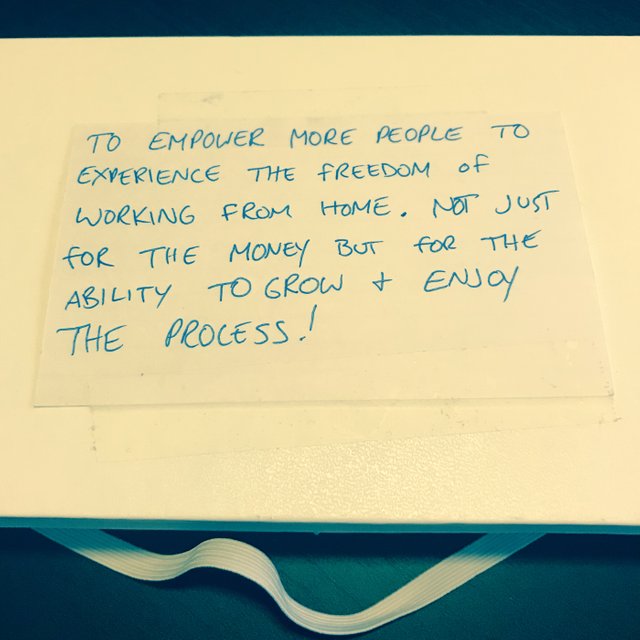 TO EMPOWER MORE PEOPLE TO
EXPERIENCE THE FREEDOM OF
WORKING FROM HOME. NOT JUST
FOR THE MONEY BUT FOR THE
ABILITY TO GROW + ENJOY
THE PROCESS!